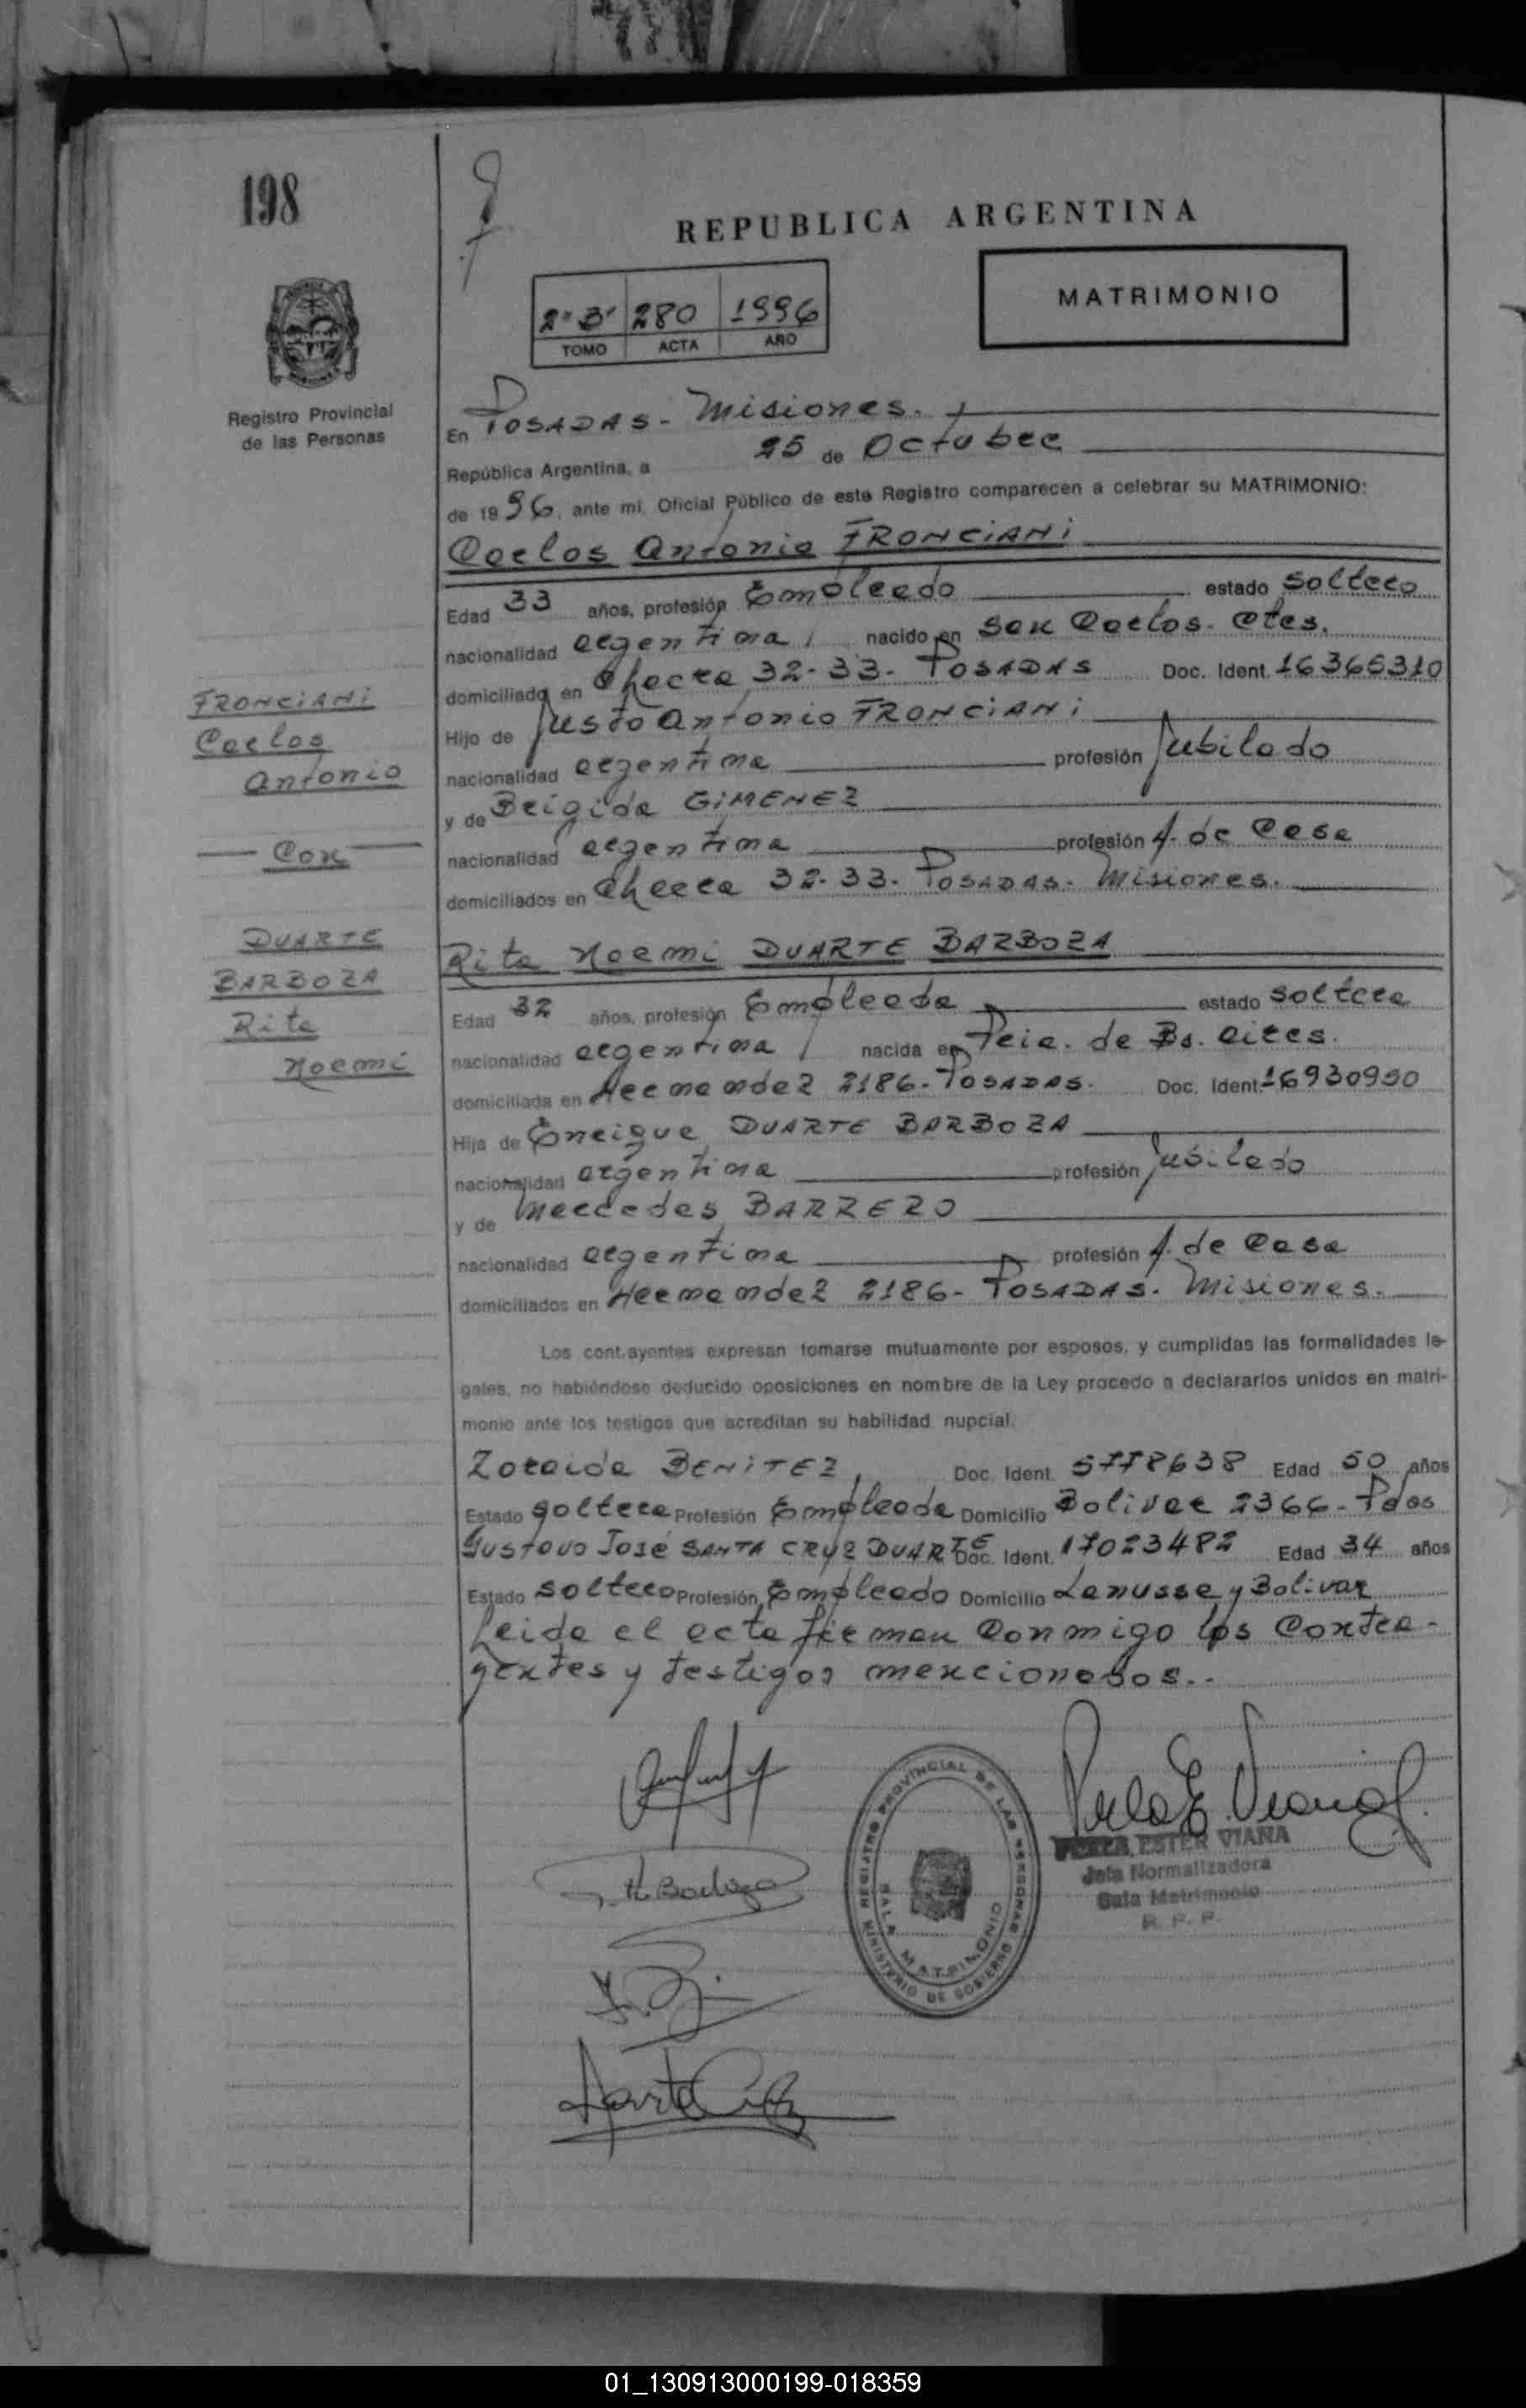 198
REPUBLICA ARGENTINA
MATRIMONIO
2º "B" 280 1996
TOMO ACTA AÑO
Registro Provincial
de las Personas
En POSADAS - Misiones.
República Argentina, a 25 de Octubre
de 1996, ante mí, Oficial Público de este Registro comparecen a celebrar su MATRIMONIO:
Carlos Antonio FRONCIANI
Edad 33 años, profesión Empleado estado soltero
nacionalidad argentina nacido en San Carlos. Ctes.
domiciliado en Chacra 32-33- POSADAS Doc. Ident. 16365310
Hijo de Justo Antonio FRONCIANI
nacionalidad argentina profesión Jubilado
y de Brigida GIMENEZ
nacionalidad argentina profesión A. de Casa
domiciliados en Chacra 32-33- POSADAS. Misiones.
FRONCIANI
Carlos
Antonio
Con
DUARTE
BARBOZA
Rita
Noemi
Rita Noemi DUARTE BARBOZA
Edad 32 años, profesión Empleada estado soltera
nacionalidad argentina nacida en Pcia. de Bs. Aires.
domiciliada en Hernandez 2186- POSADAS. Doc. Ident. 16930950
Hija de Enrique DUARTE BARBOZA
nacionalidad argentina profesión Jubilado
y de Mercedes BARRERO
nacionalidad argentina profesión A. de Casa
domiciliados en Hernandez 2186- POSADAS. Misiones.
Los contrayentes expresan tomarse mutuamente por esposos, y cumplidas las formalidades le-
gales, no habiéndose deducido oposiciones en nombre de la Ley procedo a declararlos unidos en matri-
monio ante los testigos que acreditan su habilidad nupcial.
Zoraida BENITEZ, Doc. Ident. 5778638 Edad 50 años
Estado soltera Profesión Empleada Domicilio Bolivar 2366- Pdas
Gustavo José SANTA CRUZ DUARTE Doc. Ident. 17023482 Edad 34 años
Estado soltero Profesión Empleado Domicilio Lanusse y Bolivar
Leida el acta firman conmigo los contra-
yentes y testigos mencionados..
REGISTRO PROVINCIAL DE LAS PERSONAS
MINISTERIO DE GOBIERNO
SALA MATRIMONIO
Perla E. Viana
PERLA ESTER VIANA
Jefa Normalizadora
Sala Matrimonio
R. P. P.
01_130913000199-018359